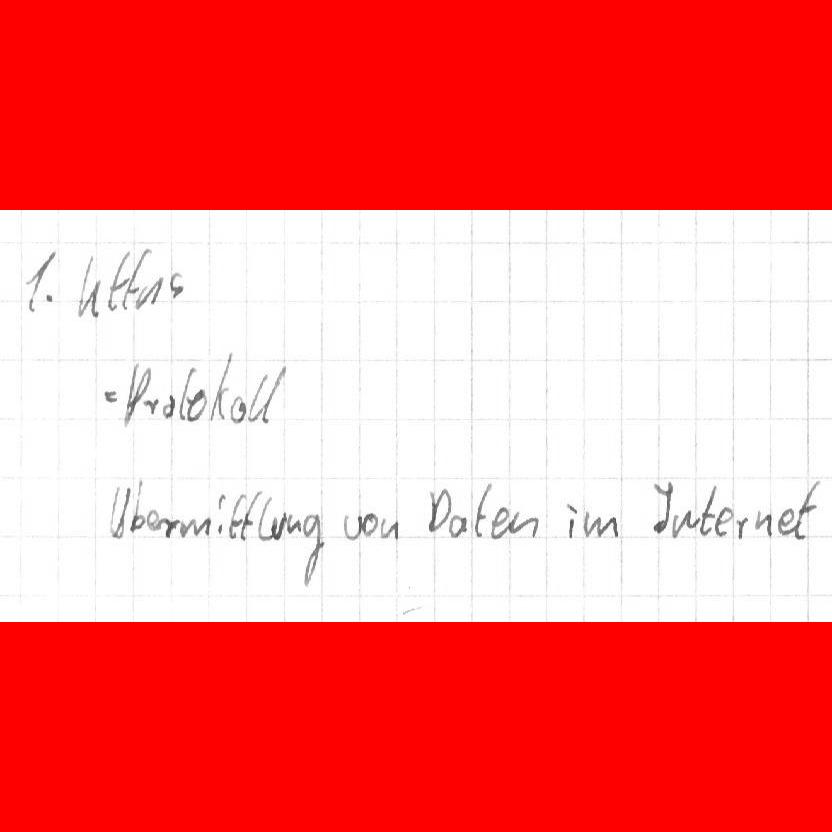 1. https
=Protokoll
Übermittlung von Daten im Internet